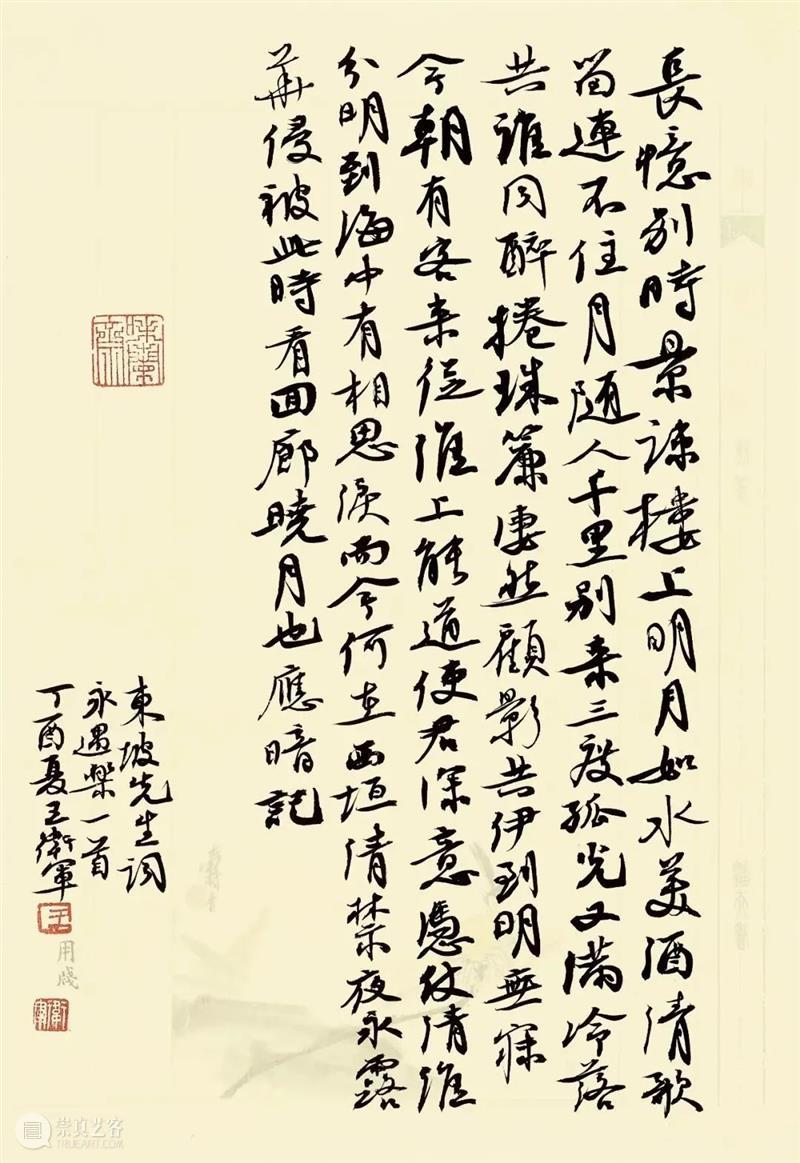 長憶别時景疎樓上明月如水美酒清歌
留連不住月随人千里别来三度孤光又滿冷落
共誰同醉捲珠簾凄然顧影共伊到明無寐
今朝有客来從淮上能道使君深意憑仗清淮
分明到海中有相思淚而今何在西垣清禁夜永露
華侵被此時看回廊曉月也應暗記
東坡先生詞
永遇樂一首
丁酉夏王衛軍
王
用牋
衛軍
崇真艺客
TRUEART.COM